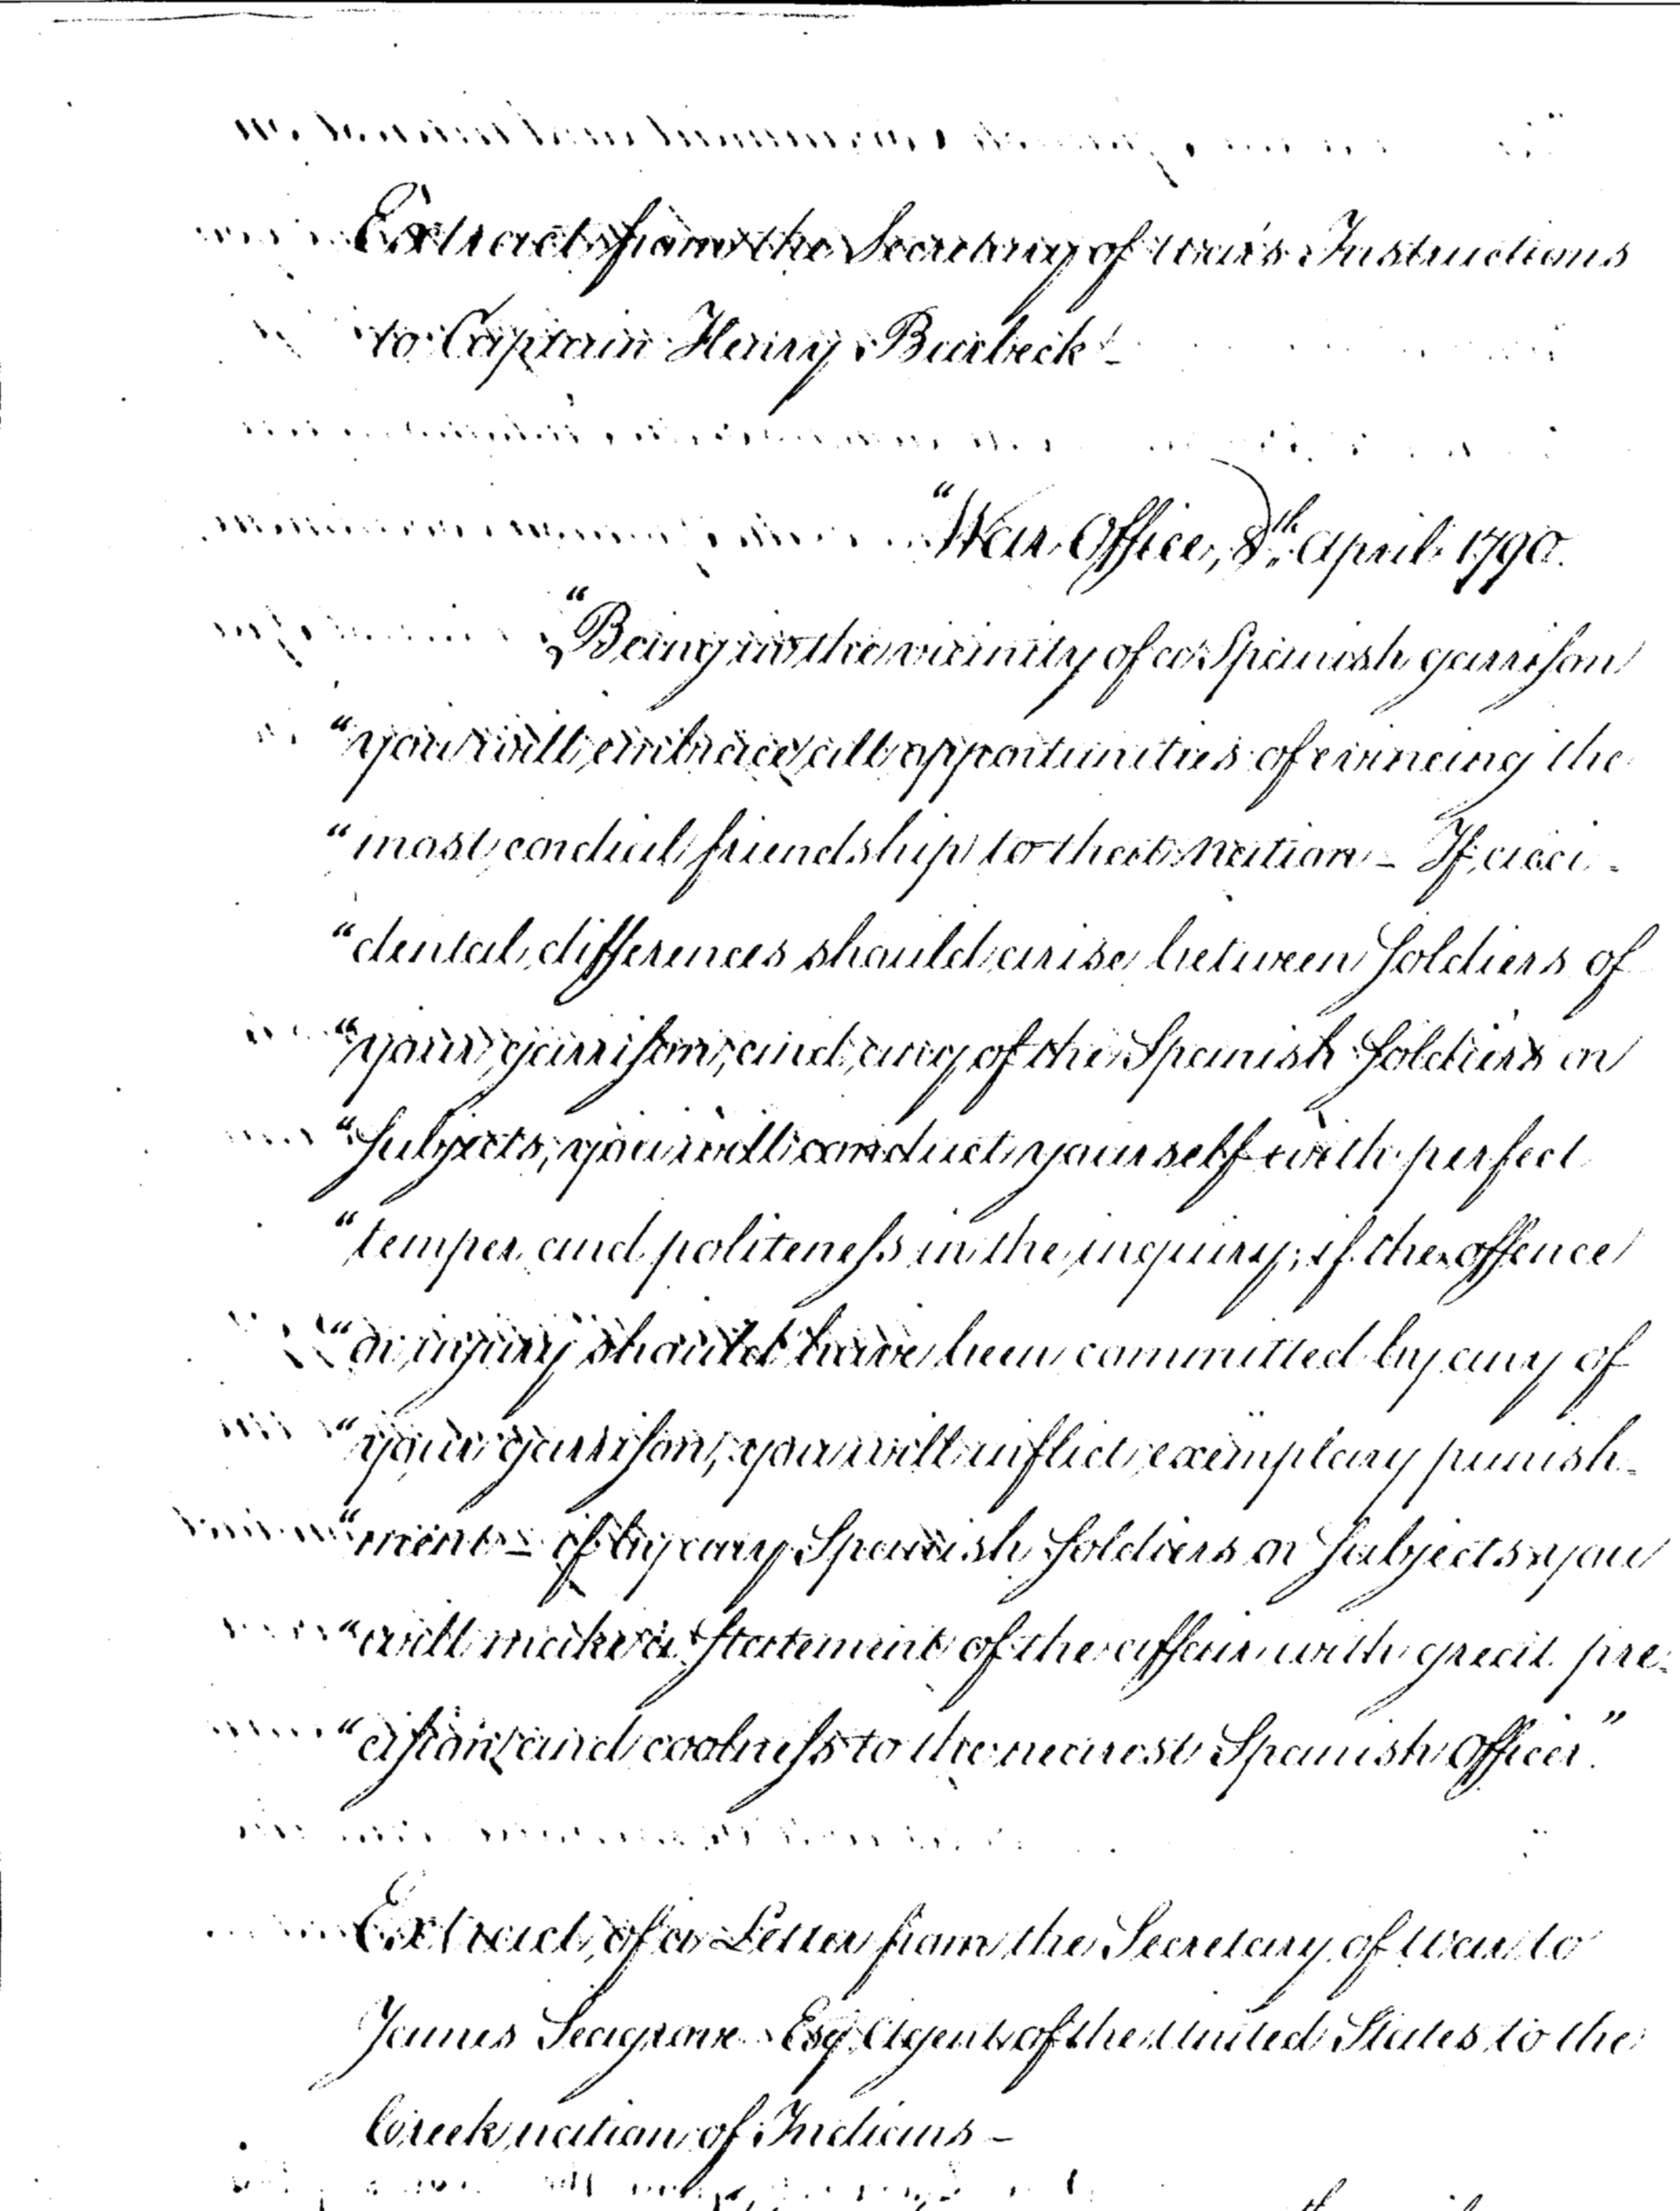 Extract from the Secretary of War's Instructions
to Captain Henry Burbeck –
"War Office, 8th April 1790.
"Being in the vicinity of a Spanish garrison
"you will embrace all opportunities of evincing the
"most cordial friendship to that nation – If acci-
"dental differences should arise between Soldiers of
"your garrison, and any of the Spanish Soldiers or
"Subjects, you will conduct yourself with perfect
"temper and politeness in the inquiry; if the offence
"or injury should have been committed by any of
"your garrison, you will inflict exemplary punish-
"ment – if by any Spanish Soldiers or Subjects you
"will make a Statement of the affair with great pre-
"cision and coolness to the nearest Spanish Officer."
Extract of a Letter from the Secretary of War to
James Seagrove Esq. Agent of the United States to the
Creek nation of Indians –